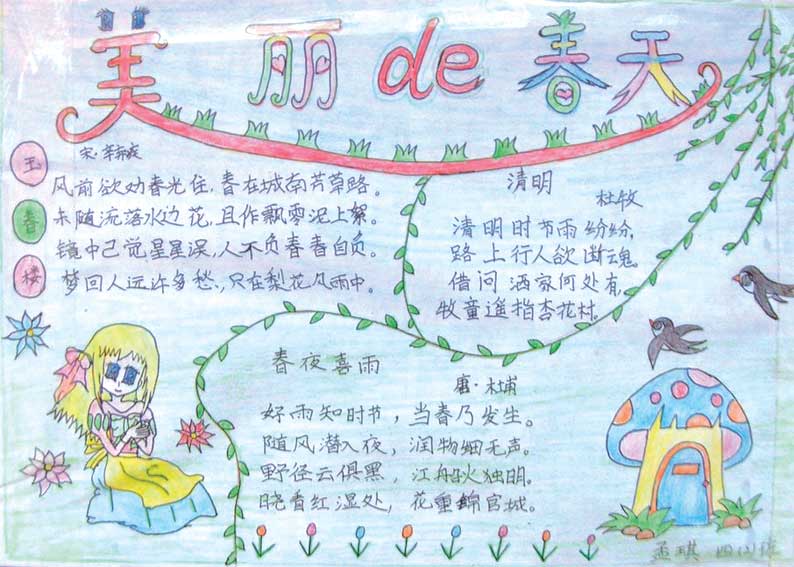 美丽de春天
玉春楼
宋·辛弃疾
风前欲劝春光住，春在城南芳草路。
未随流落水边花，且作飘零泥上絮。
镜中已觉星星误，人不负春春自负。
梦回人远许多愁，只在梨花风雨中。
清明
杜牧
清明时节雨纷纷，
路上行人欲断魂。
借问酒家何处有，
牧童遥指杏花村。
春夜喜雨
唐·杜甫
好雨知时节，当春乃发生。
随风潜入夜，润物细无声。
野径云俱黑，江船火独明。
晓看红湿处，花重锦官城。
孟琪 四 班